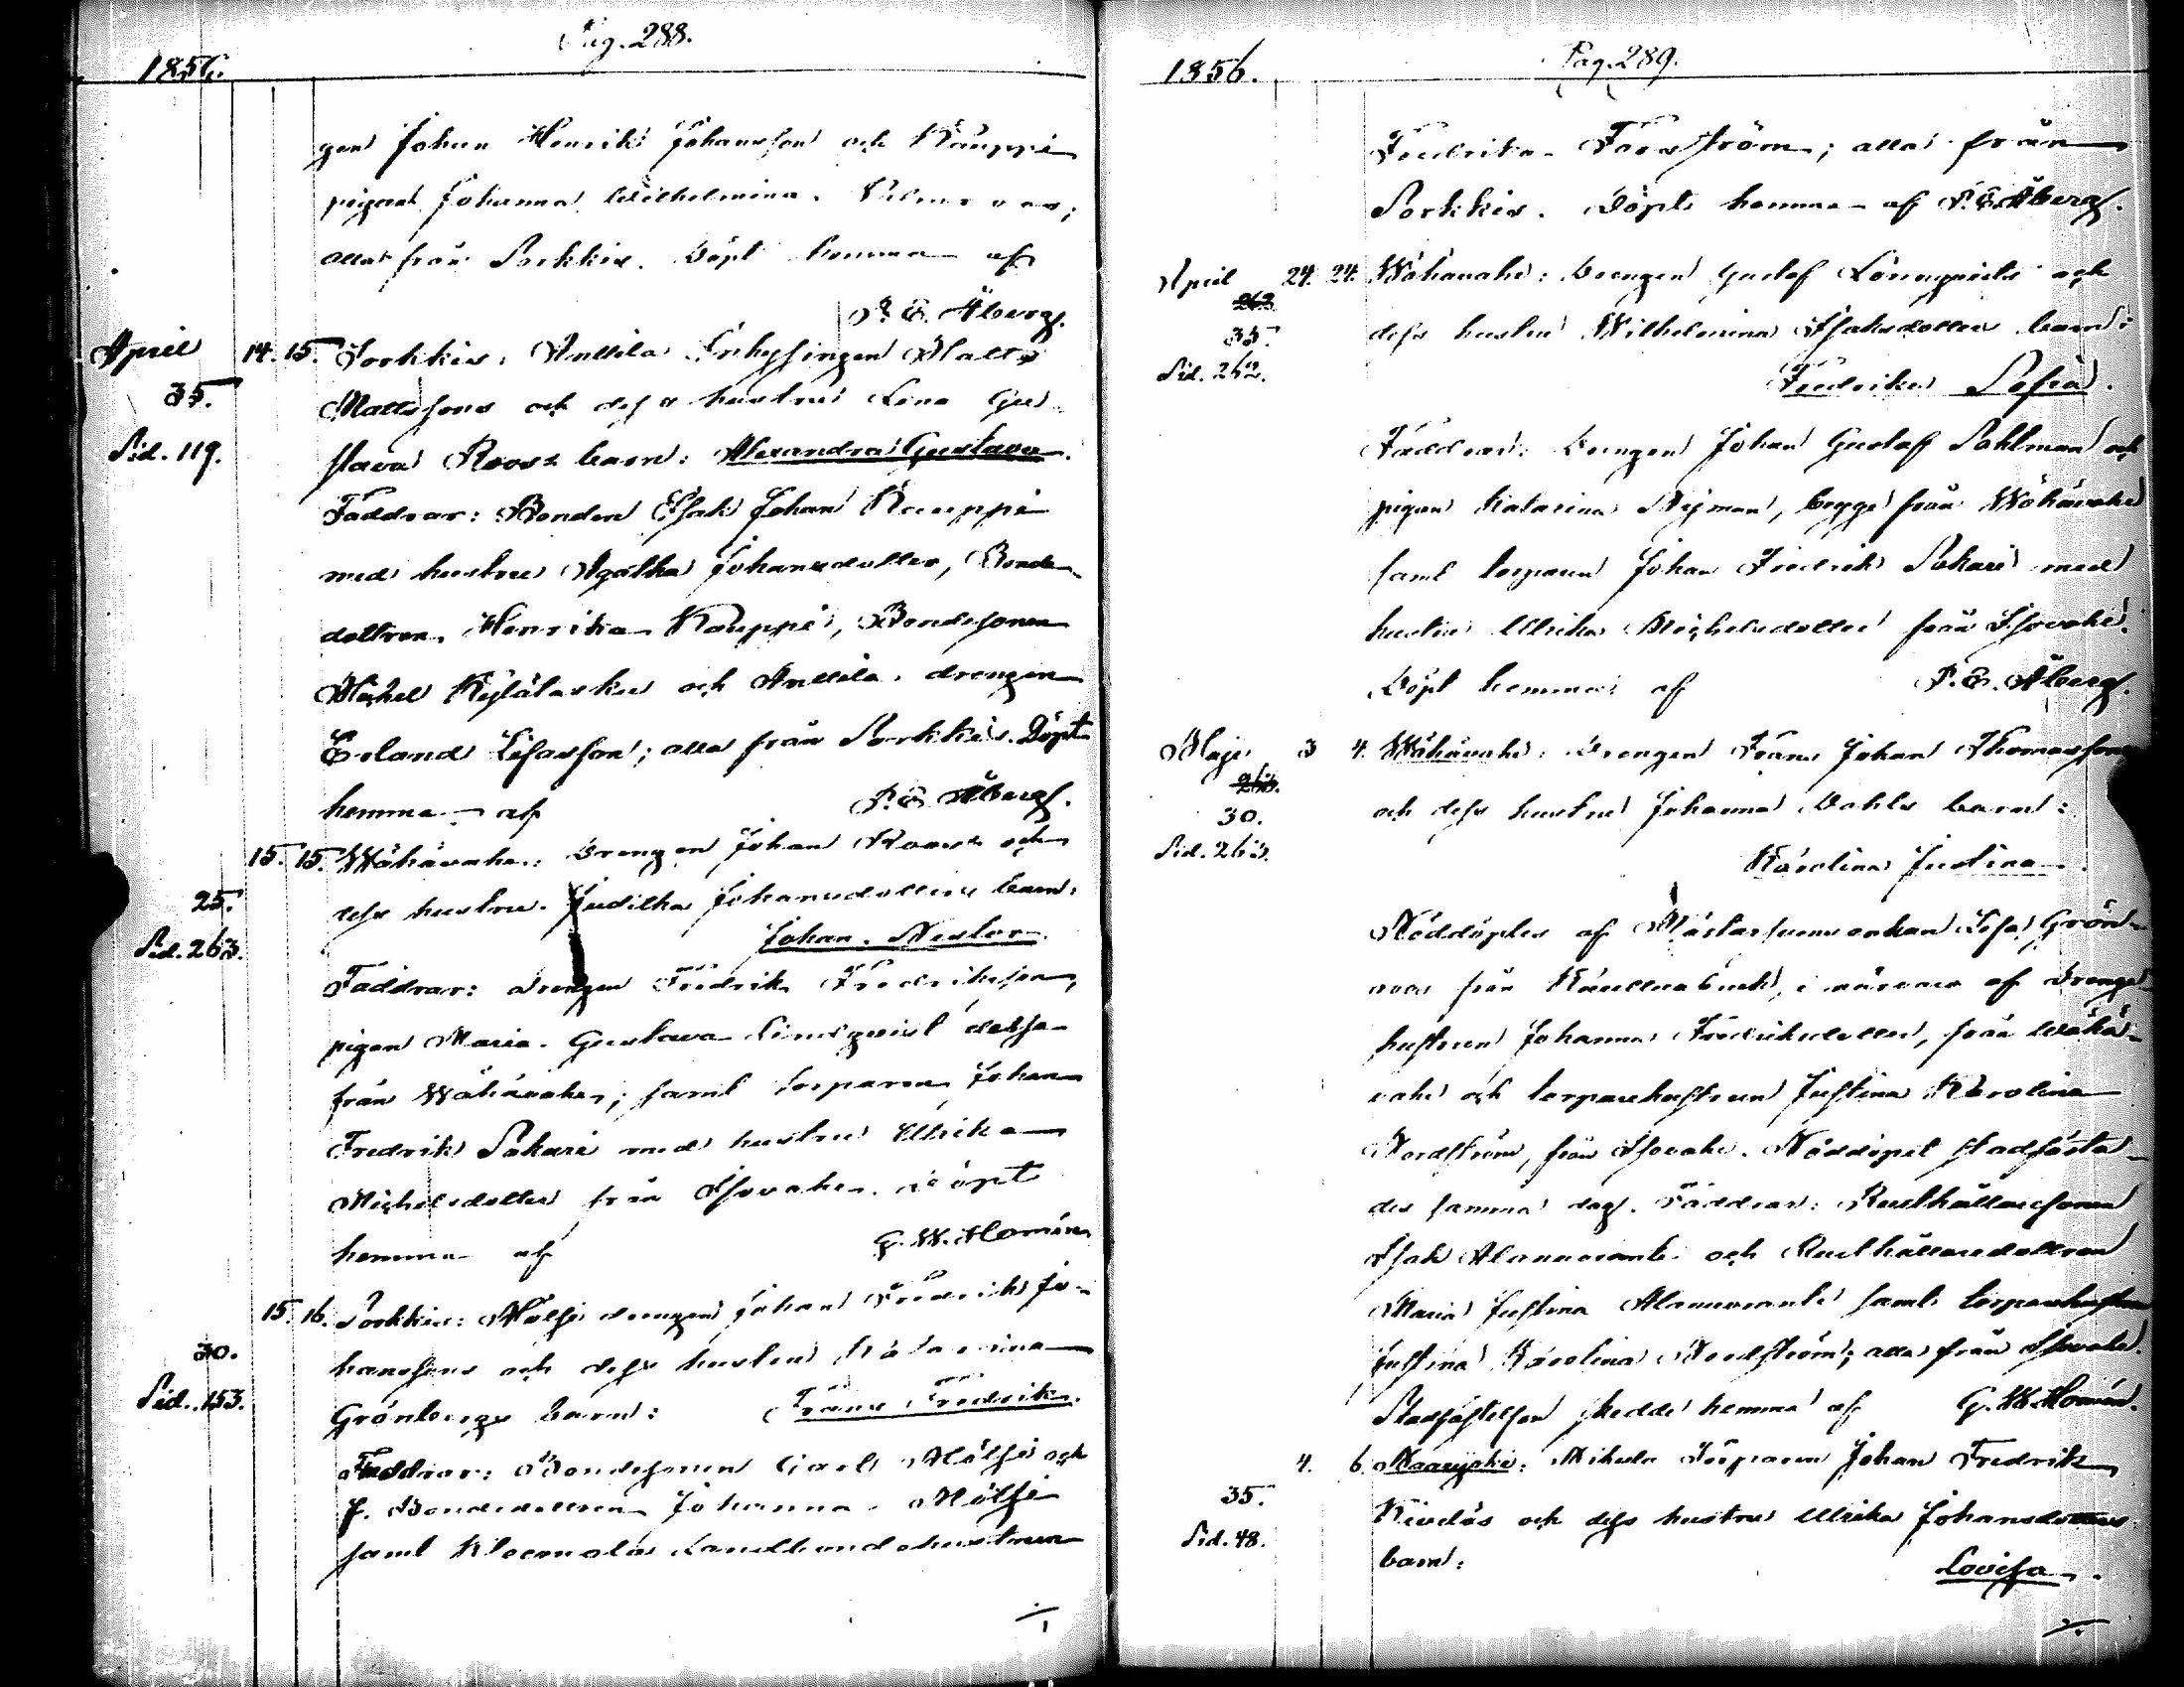 Pag. 288.
1856.
gen Johan Henrik Johansson och Kauppi
pigan Johanna Wilhelmina
alla från Sorkkis. Döpt hemma af
P. E. Åberg.
April 14. 15. Sorkkis: Anttila Inhysingen Matts
35. Mattssons och dess hustru Lena Gu-
Sid. 119. stava Rooss barn: Alexandra Gustava.
Faddrar: Bonden Isak Johan Kauppi
med hustru Agatha Johansdotter, Bonde-
dottren Henrika Kauppi, Bondesonen
Michel Kylälasku och Anttila drengen
Erland Esasson; alla från Sorkkis. Döpt
hemma af P. E. Åberg.
15. 15. Wähävahe: Drengen Johan Rooss och
25. dess hustru Juditha Johansdotters barn:
Sid. 263. Johan Nestor.
Faddrar: drengen Fredrik Fredriksson,
pigan Maria Gustava Lindqvist dessa
från Wähävahe; samt torparen Johan
Fredrik Sakari med hustru Ulrika
Michelsdotter från Isovahe. Döpt
hemma af G. W. Homén
15. 16. Sorkkis: Mölsi drengen Johan Fredrik Jo-
30. hanssons och dess hustru Katarina
Sid. 153. Grönbergs barn: Frans Fredrik.
Faddrar: Bondesonen Carl Mölsi och
f. Bondedottren Johanna Mölsi
samt Klocnola Landbondehustrun
Pag. 289.
1856.
Fredrika Forsström; alla från
Sorkkis. Döpt hemma af P. E. Åberg.
April 24. 24. Wähävahe: Drengen Gustaf Lönnqvists och
262
35. dess hustru Wilhelmina Isaksdotters barn:
Sid. 262. Fredrika Sofia.
Faddrar: Drengen Johan Gustaf Sahlman och
pigan Katarina Nyman, begge från Wähävahe
samt torparen Johan Fredrik Sakari med
hustru Ulrika Michelsdotter från Isovahe.
Döpt hemma af P. E. Åberg.
Maji 3 4. Wähävahe: Drengen Frans Johan Thomassons
263.
30. och dess hustru Johanna Dahls barn:
Sid. 263. Karolina Justina.
Nöddöptes af Mästarsvensenkan Lisa Grön-
roos från Kaulluabueh, i närvaro af drengs
hustrun Johanna Fredriksdotter, från Wähä-
vahe och torparehustrun Justina Karolina
Nordström, från Isovahe. Nöddopet stadfästa-
des samma dag. Faddrar: Rusthållaresonen
Isak Alanuoranti och Rusthållaredottren
Maria Justina Alanuoranti samt torparehustrun
Justina Karolina Nordström; alla från Isovahe.
Stadfästelsen skedde hemma af G. W. Homén.
4. 6. Maaryski: Mikola Torparen Johan Fredrik
35. Kiveläs och dess hustru Ulrika Johansdotters
Sid. 48. barn: Lovisa.